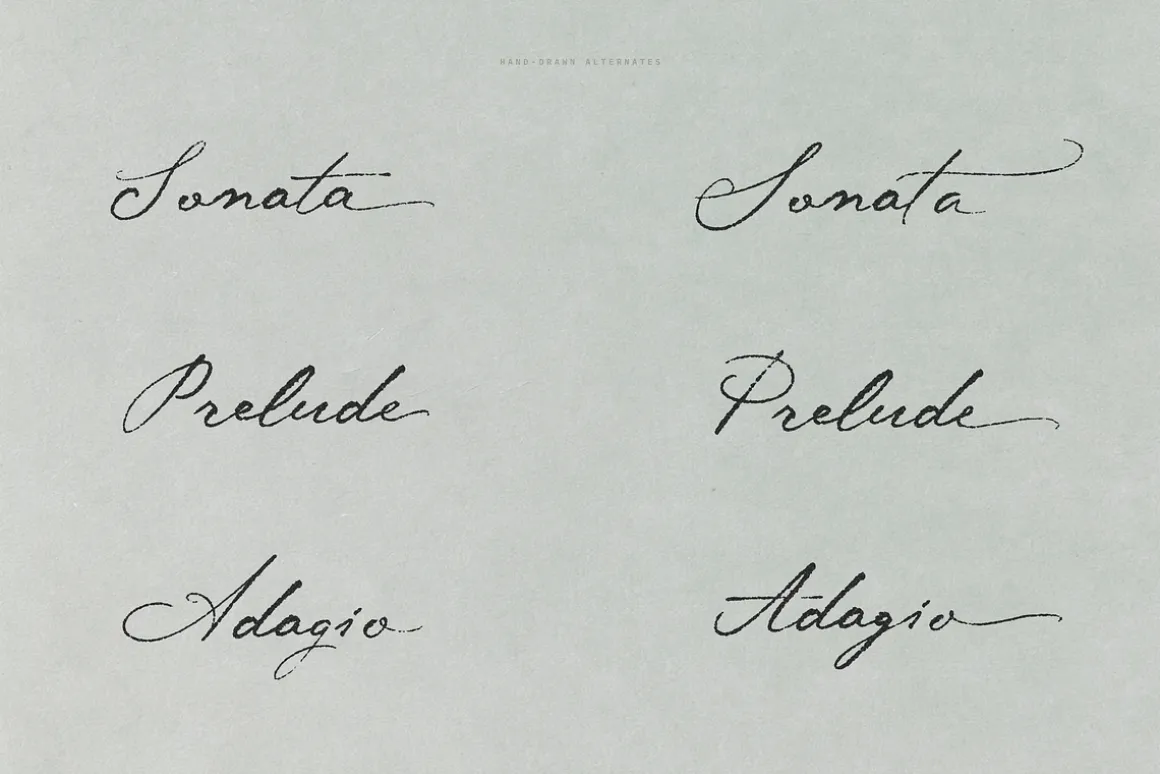 HAND-DRAWN ALTERNATES
Sonata Sonata
Prelude Prelude
Adagio Adagio